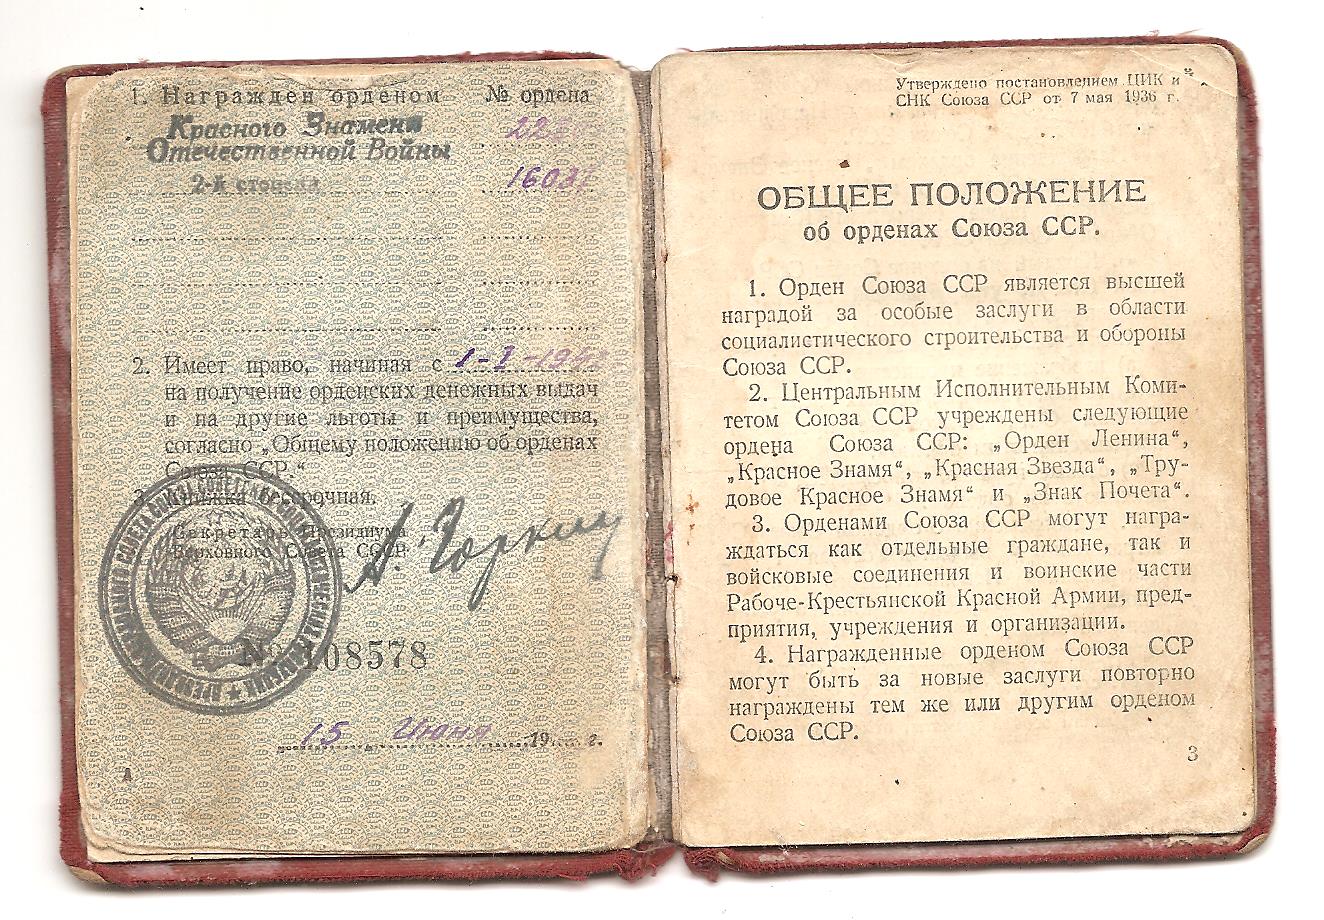 1. Награжден орденом № ордена
Красного Знамени
Отечественной Войны
2-й степени
2. Имеет право, начиная с 1-I-194
на получение орденских денежных выдач
и на другие льготы и преимущества,
согласно „Общему положению об орденах
Союза ССР.“
3. Книжка бессрочная.
Секретарь Президиума
Верховного Совета СССР
А. Горкин
№ 108578
15 Июня 19 г.
А
Утверждено постановлением ЦИК и
СНК Союза ССР от 7 мая 1936 г.
ОБЩЕЕ ПОЛОЖЕНИЕ
об орденах Союза ССР.
1. Орден Союза ССР является высшей
наградой за особые заслуги в области
социалистического строительства и обороны
Союза ССР.
2. Центральным Исполнительным Коми-
тетом Союза ССР учреждены следующие
ордена Союза ССР: „Орден Ленина“,
„Красное Знамя“, „Красная Звезда“, „Тру-
довое Красное Знамя“ и „Знак Почета“.
3. Орденами Союза ССР могут награ-
ждаться как отдельные граждане, так и
войсковые соединения и воинские части
Рабоче-Крестьянской Красной Армии, пред-
приятия, учреждения и организации.
4. Награжденные орденом Союза ССР
могут быть за новые заслуги повторно
награждены тем же или другим орденом
Союза ССР.
3